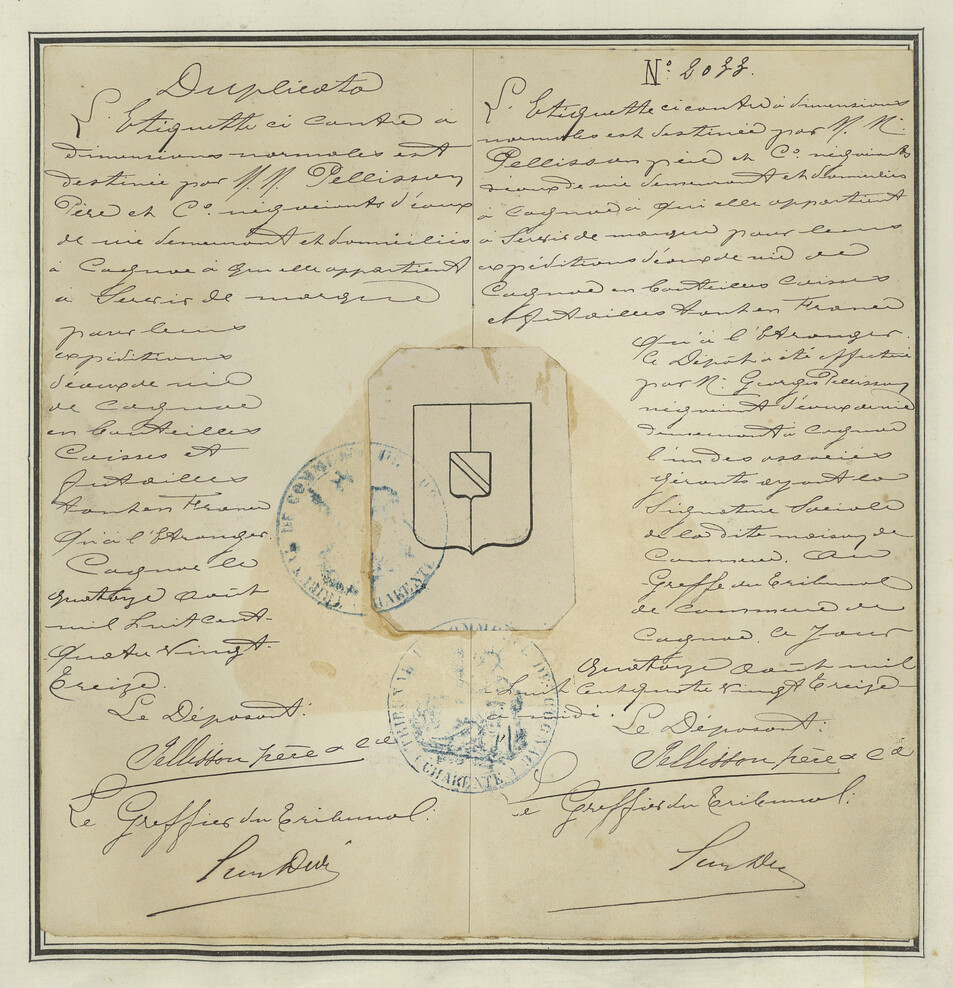 Duplicata
L'Etiquette ci contre à
dimensions normales est
destinée par M.M. Pellisson
Père et Co. négociants d'eaux
de vie demeurant et domiciliés
à Cognac à qui elle appartient
à Servir de marque
pour leurs
expéditions
d'eaux de vie
de Cognac
en bouteilles
Caisses et
futailles
tant en France
qu'à l'Etranger.
Cognac le
quatorze août
mil huit cent-
quatre vingt-
treize.
Le Déposant:
Pellisson père & Cie
Le Greffier du Tribunal.
No. 2033.
L'Etiquette ci contre à dimensions
normales est destinée par M. M.
Pellisson père et Co négociants
d'eaux de vie demeurant et domiciliés
à Cognac à qui elle appartient
à Servir de marque pour leurs
expéditions d'eaux de vie de
Cognac en bouteilles caisses
et futailles tant en France
qu'à l'Etranger.
Ce Dépôt a été effectué
par M. Georges Pellisson
négociant d'eaux de vie
demeurant à Cognac
l'un des associés
gérants ayant la
Signature Sociale
de la dite maison de
Commerce. Au
Greffe du Tribunal
de Commerce de
Cognac, ce Jour
quatorze août mil
huit cent quatre vingt treize
à midi.
Le Déposant:
Pellisson père & Cie
Le Greffier du Tribunal.
TRIBUNAL DE COMMERCE DE COGNAC
(CHARENTE)